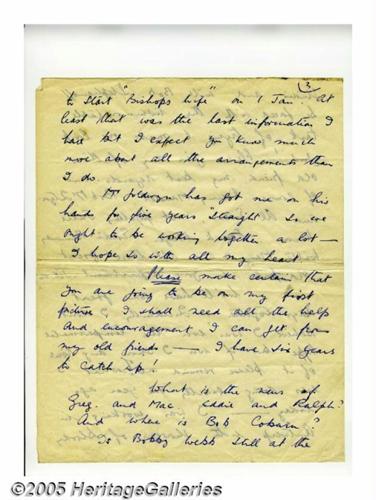 2
to start "Bishops Wife" on 1 Jan. At
least that was the last information I
had but I expect you know much
more about all the arrangements than
I do.
Mr Goldwyn has got me on his
hands for five years "straight" so we
ought to be working together a lot —
I hope so with all my heart
Please make certain that
you are going to be on my first
picture. I shall need all the help
and encouragement I can get from
my old friends — I have six years
to catch up!
What is the news of
Greg and Mac, Eddie and Ralph?
And where is Bob Coburn?
Is Bobby Webb still at the
©2005 HeritageGalleries